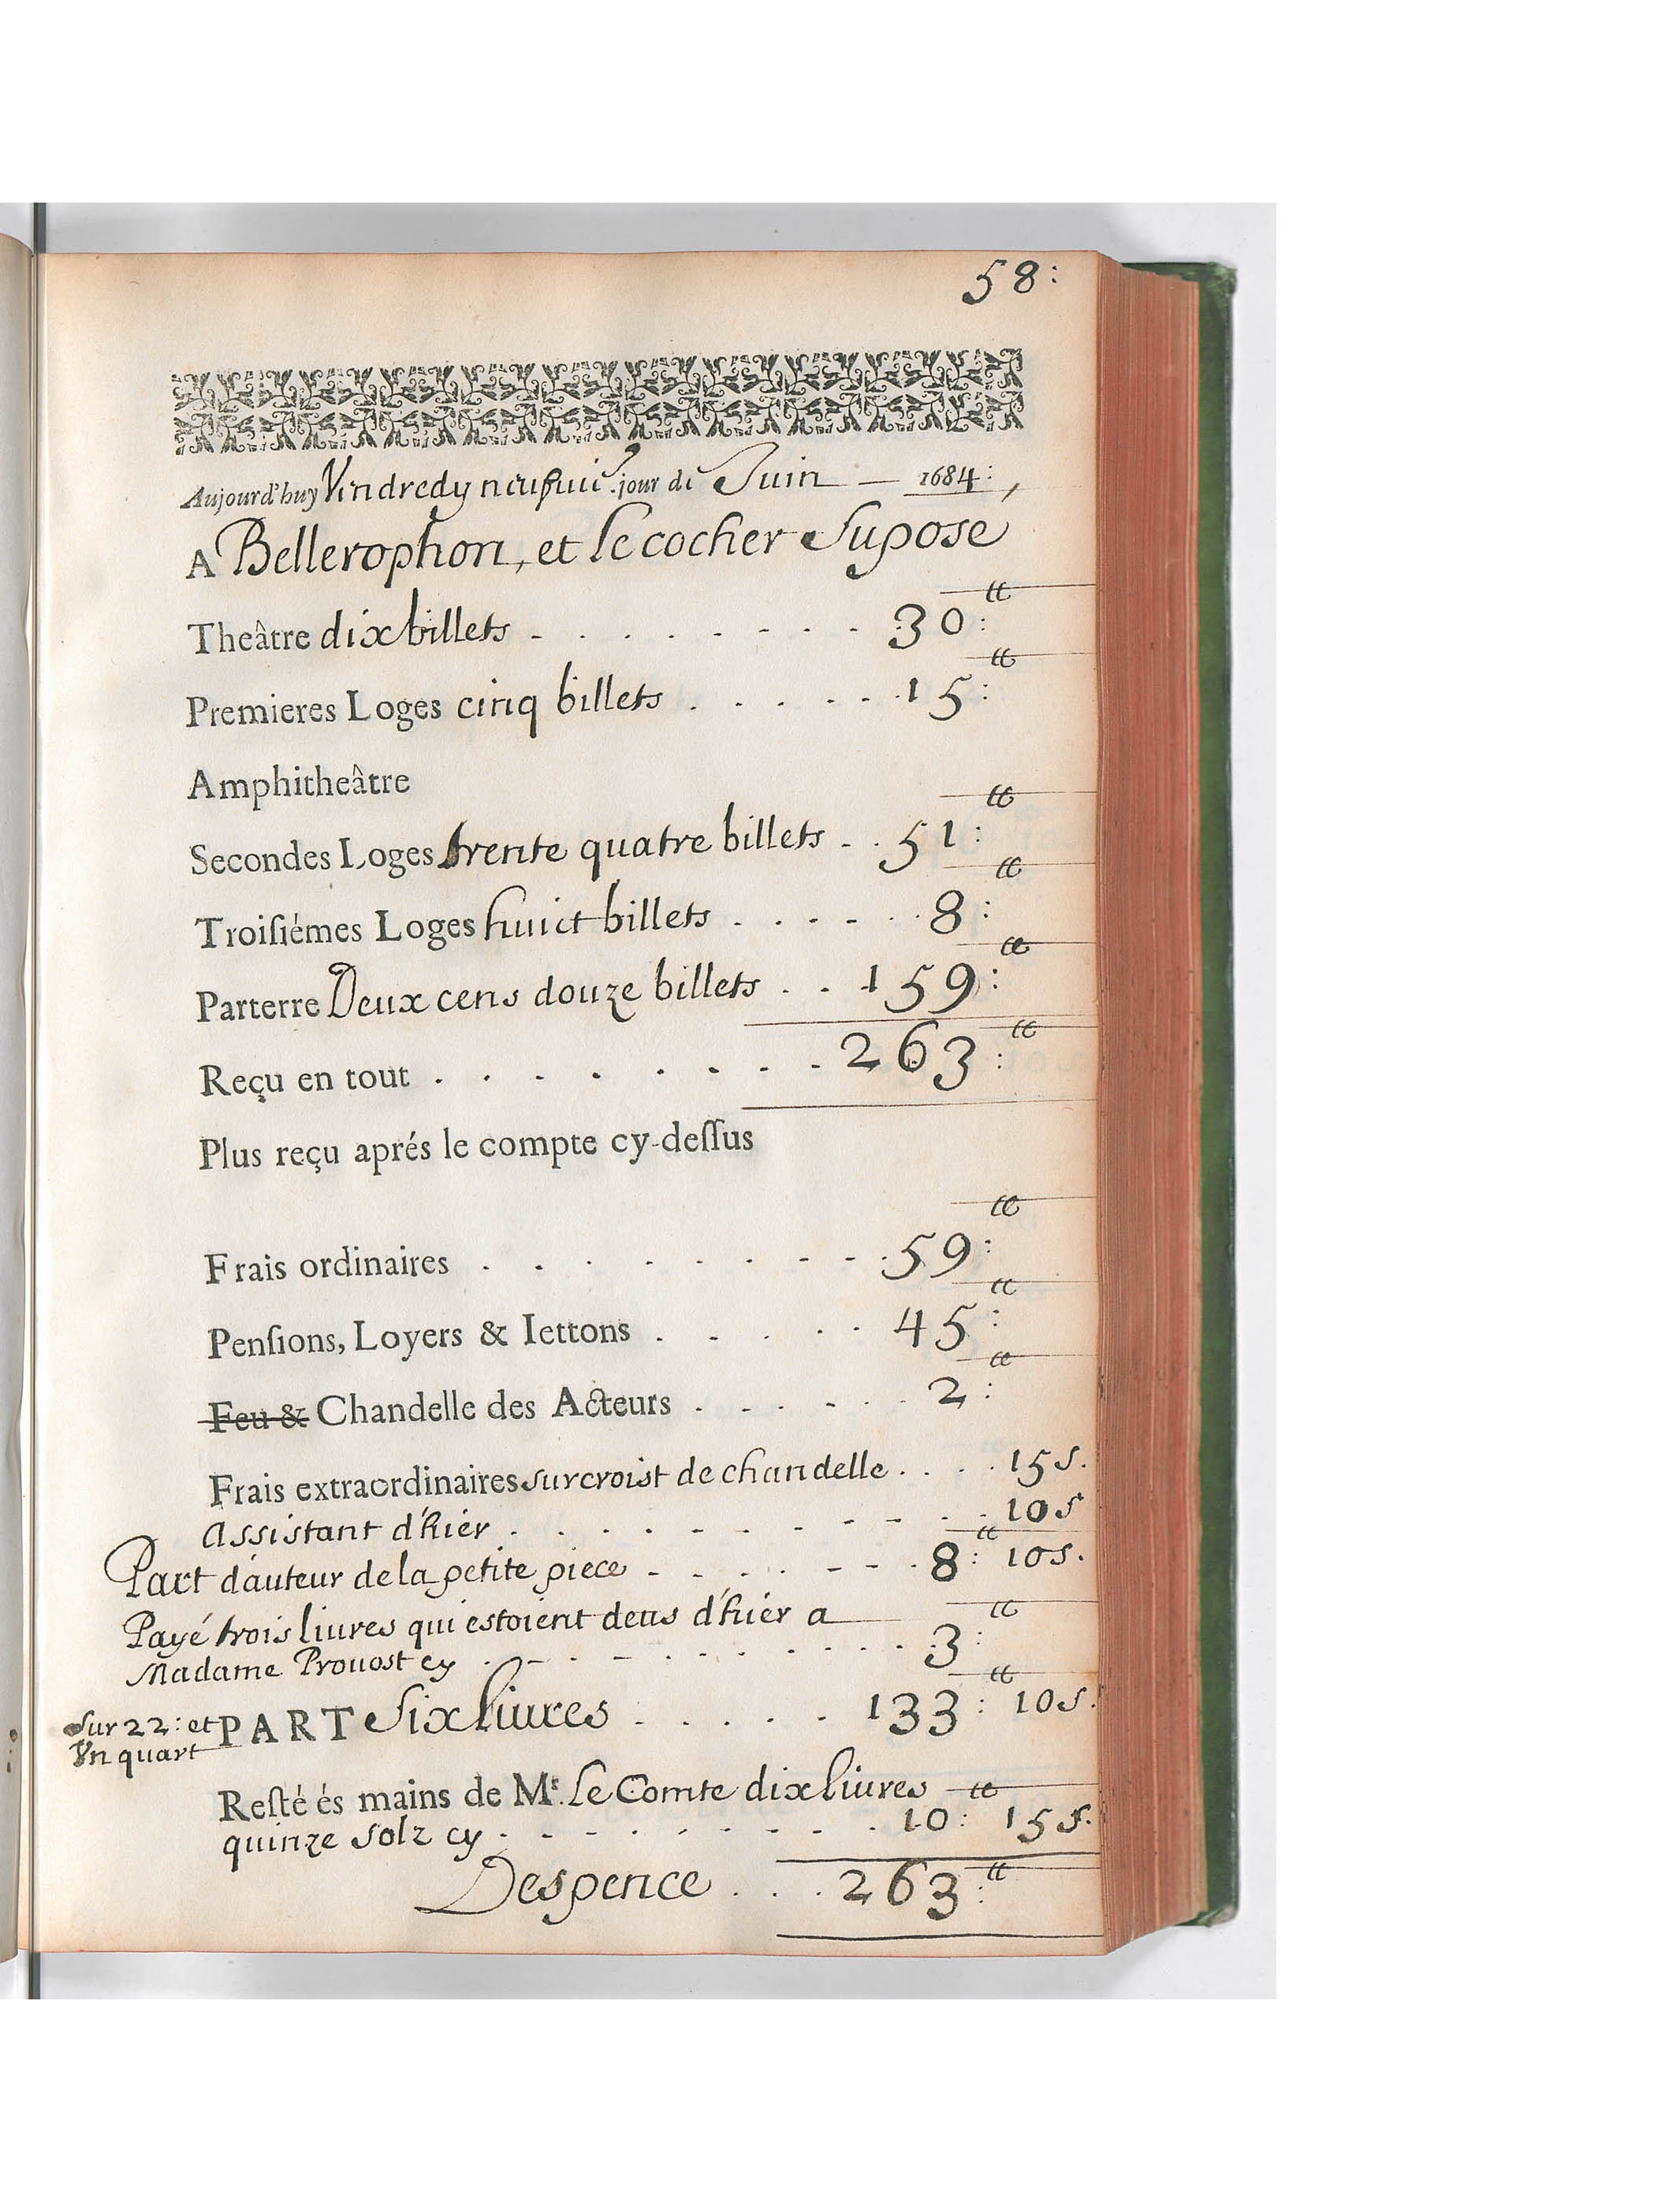 58:
Aujourd'huy Vendredy neufuie. jour de Juin — 1684:
A Bellerophon, et le cocher Suposé
Theâtre dix billets - . . . . - - - 30: tt
Premieres Loges cinq billets . . . . - - 15: tt
Amphitheâtre
Secondes Loges trente quatre billets - . 51: tt
Troisiémes Loges huict billets . . . - - 8: tt
Parterre Deux cens douze billets . . 159: tt
Reçu en tout . . . . . . . - - 263: tt
Plus reçu aprés le compte cy-dessus
Frais ordinaires . . . . . . - - - 59: tt
Pensions, Loyers & Iettons . . . . . 45: tt
Feu & Chandelle des Acteurs . . . . . . 2: tt
Frais extraordinaires surcroist de chandelle . . . . 15 s.
Assistant d'hier . . . . . . - - - . . 10 s
Part d'auteur de la petite piece - . . . - - . 8: tt 10 s.
Payé trois liures qui estoient deus d'hier a
Madame Prouost cy . - . - . . . . . . 3: tt
Sur 22: et
Vn quart
PART Six liures . . . . . 133: tt 10 s.
Resté és mains de Mr. Le Comte dix liures
quinze solz cy . - - - - . - - - . 10: tt 15 s.
Despence . . . 263: tt